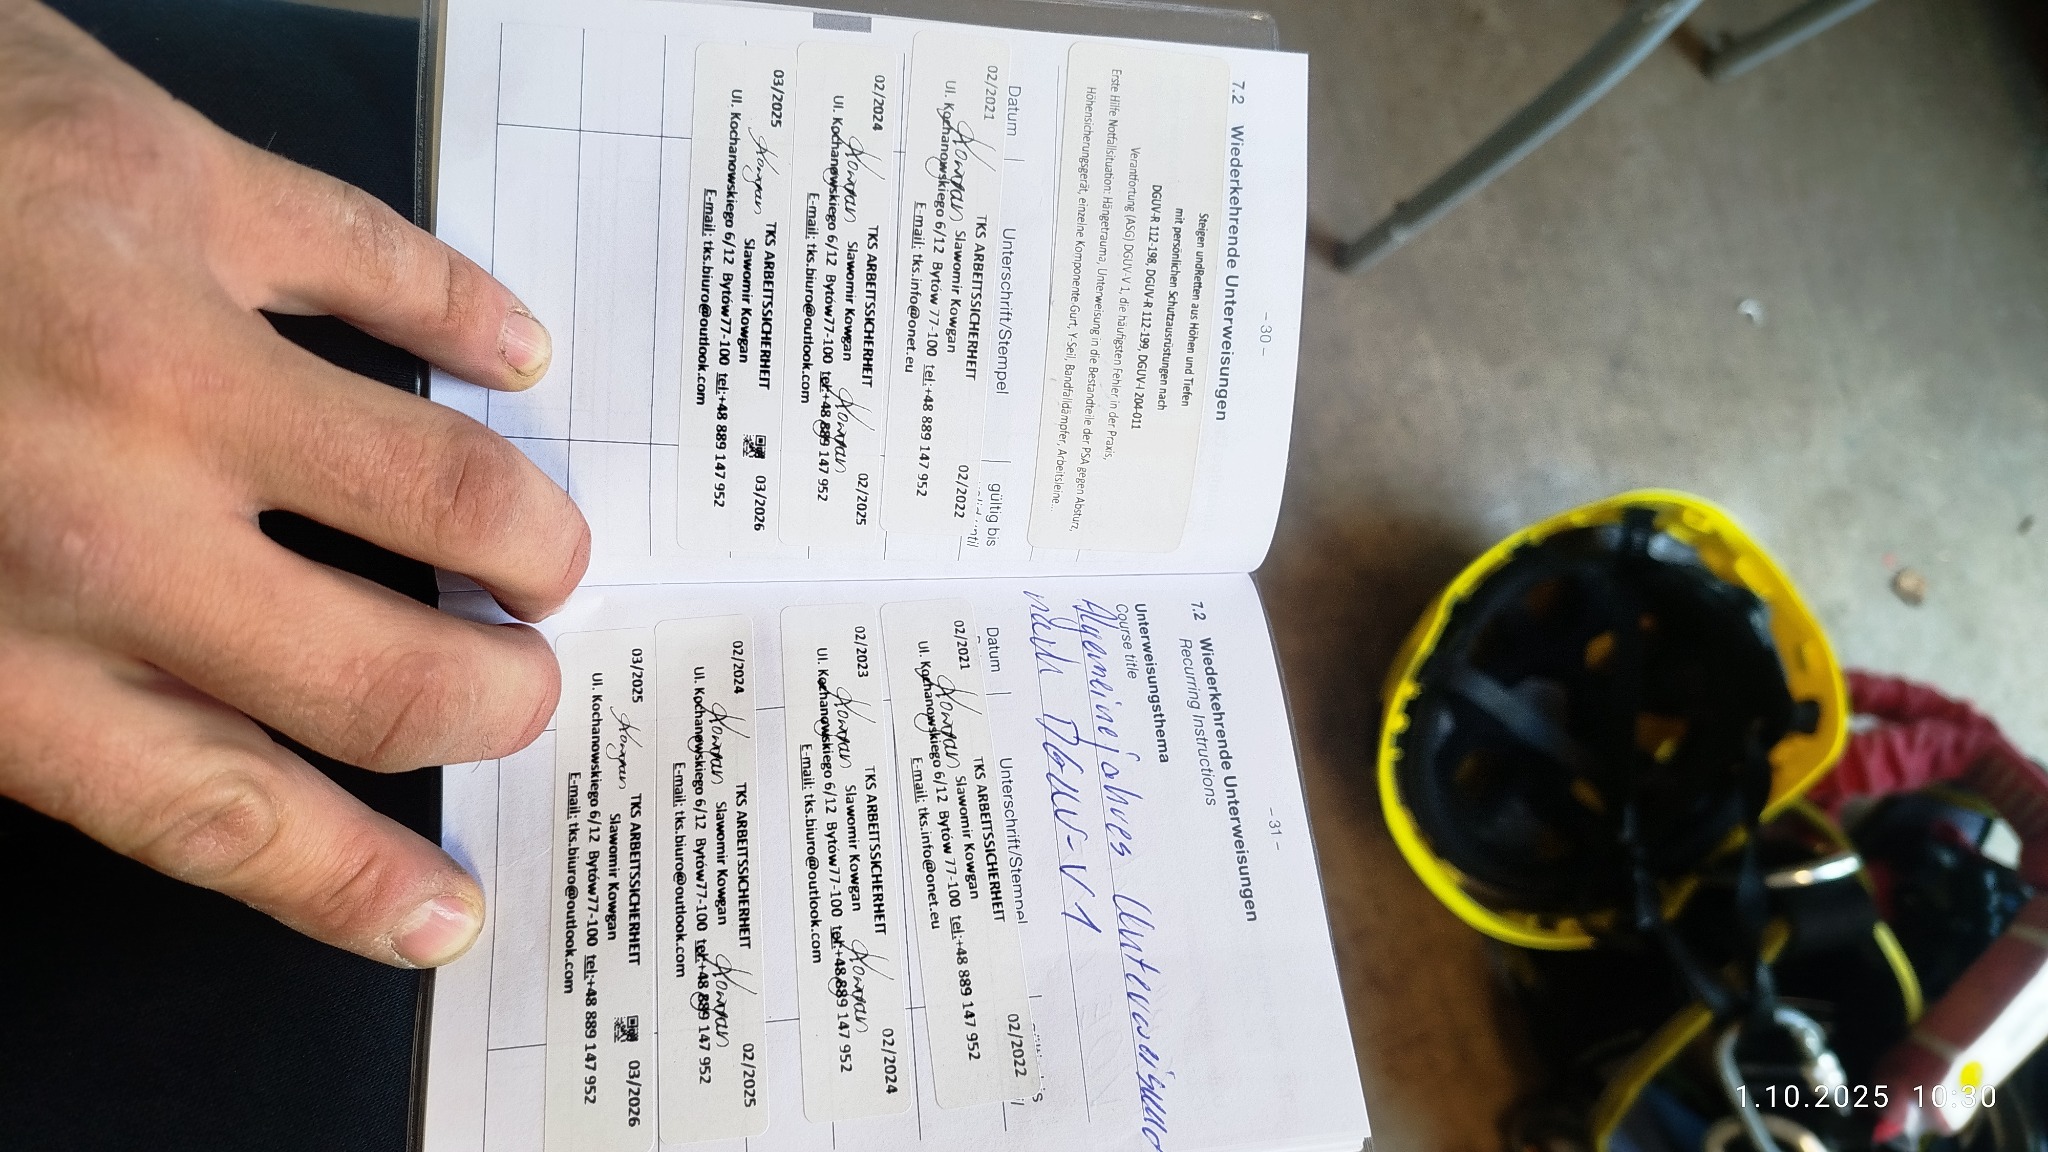 – 30 –
7.2 Wiederkehrende Unterweisungen
Steigen undRetten aus Höhen und Tiefen
mit persönlichen Schutzausrüstungen nach
DGUV-R 112-198, DGUV-R 112-199, DGUV-I 204-011
Verantfortung (ASG) DGUV-V 1, die häufigsten Fehler in der Praxis,
Erste Hilfe Notfallsituation: Hängetrauma, Unterweisung in die Bestandteile der PSA gegen Absturz,
Höhensicherungsgerät, einzelne Komponente-Gurt, Y-Seil, Bandfalldämpfer, Arbeitsleine...
Datum Unterschrift/Stempel gültig bis
until
02/2021 TKS ARBEITSSICHERHEIT 02/2022
Slawomir Kowgan
Ul. Kochanowskiego 6/12 Bytów 77-100 tel:+48 889 147 952
E-mail: tks.info@onet.eu
02/2024 TKS ARBEITSSICHERHEIT 02/2025
Slawomir Kowgan
Ul. Kochanowskiego 6/12 Bytów77-100 tel:+48 889 147 952
E-mail: tks.biuro@outlook.com
03/2025 TKS ARBEITSSICHERHEIT 03/2026
Slawomir Kowgan
Ul. Kochanowskiego 6/12 Bytów77-100 tel:+48 889 147 952
E-mail: tks.biuro@outlook.com
– 31 –
7.2 Wiederkehrende Unterweisungen
Recurring Instructions
Unterweisungsthema
Course title
nach DGUV-V 1
Datum Unterschrift/Stempel
02/2021 TKS ARBEITSSICHERHEIT 02/2022
Slawomir Kowgan
Ul. Kochanowskiego 6/12 Bytów 77-100 tel:+48 889 147 952
E-mail: tks.info@onet.eu
02/2023 TKS ARBEITSSICHERHEIT 02/2024
Slawomir Kowgan
Ul. Kochanowskiego 6/12 Bytów77-100 tel:+48 889 147 952
E-mail: tks.biuro@outlook.com
02/2024 TKS ARBEITSSICHERHEIT 02/2025
Slawomir Kowgan
Ul. Kochanowskiego 6/12 Bytów77-100 tel:+48 889 147 952
E-mail: tks.biuro@outlook.com
03/2025 TKS ARBEITSSICHERHEIT 03/2026
Slawomir Kowgan
Ul. Kochanowskiego 6/12 Bytów77-100 tel:+48 889 147 952
E-mail: tks.biuro@outlook.com
1.10.2025 10:30